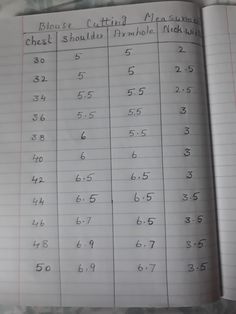 Blouse Cutting Measurem
Chest Shoulder Armhole Neck wid
30 5 5 2
32 5 5 2.5
34 5.5 5.5 2.5
36 5.5 5.5 3
38 6 5.5 3
40 6 6 3
42 6.5 6.5 3
44 6.5 6.5 3.5
46 6.7 6.5 3.5
48 6.9 6.7 3.5
50 6.9 6.7 3.5